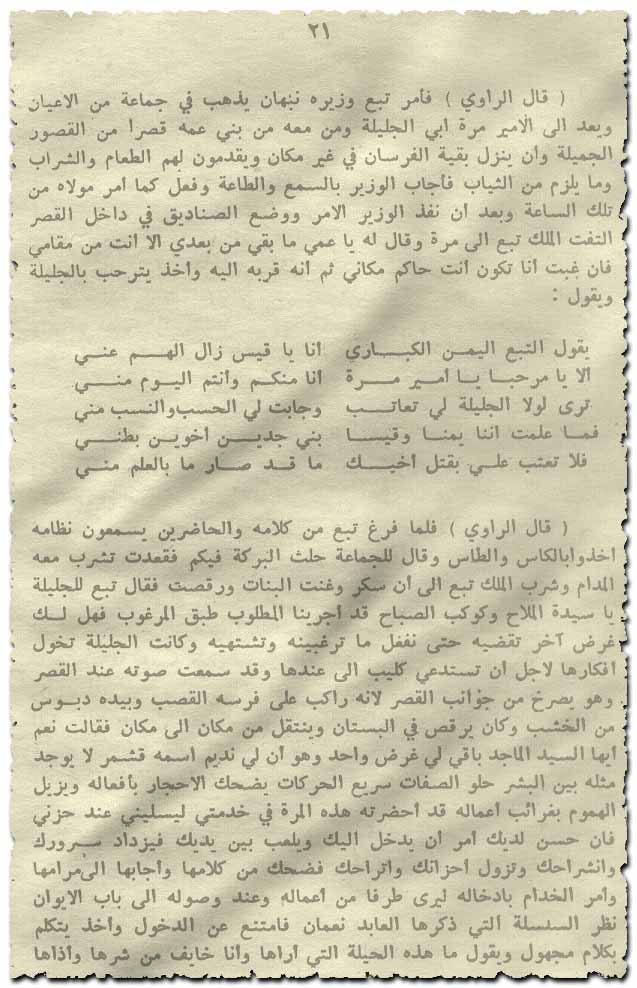 ٢١
( قال الراوي ) فأمر تبع وزيره نبهان يذهب في جماعة من الاعيان
ويعد الى الامير مرة أبي الجليلة ومن معه من بني عمه قصراً من القصور
الجميلة وأن ينزل بقية الفرسان في غير مكان ويقدمون لهم الطعام والشراب
وما يلزم من الثياب فأجاب الوزير بالسمع والطاعة وفعل كما أمر مولاه من
تلك الساعة وبعد أن نفذ الوزير الامر ووضع الصناديق في داخل القصر
التفت الملك تبع الى مرة وقال له يا عمي ما بقي من بعدي الا أنت من مقامي
فان غبت أنا تكون أنت حاكم مكاني ثم أنه قربه اليه وأخذ يترحب بالجليلة
ويقول :
يقول التبع اليمن الكباري أنا يا قيس زال الهم عني
ألا يا مرحبا يا أمير مرة أنا منكم وأنتم اليوم مني
ترى لولا الجليلة لي تعاتب وجابت لي الحسب والنسب مني
فما علمت اننا يمنا وقيسا بني جدين أخوين بظني
فلا تعتب علي بقتل أخيك ما قد صار ما بالعلم مني
( قال الراوي ) فلما فرغ تبع من كلامه والحاضرين يسمعون نظامه
اخذوابالكاس والطاس وقال للجماعة حلت البركة فيكم فقعدت تشرب معه
المدام وشرب الملك تبع الى أن سكر وغنت البنات ورقصت فقال تبع للجليلة
يا سيدة الملاح وكوكب الصباح قد أجرينا المطلوب طبق المرغوب فهل لك
غرض آخر تقضيه حتى نفعل ما ترغبينه وتشتهيه وكانت الجليلة تخول
افكارها لاجل أن تستدعي كليب الى عندها وقد سمعت صوته عند القصر
وهو يصرخ من جوانب القصر لانه راكب على فرسه القصب وبيده دبوس
من الخشب وكان يرقص في البستان وينتقل من مكان الى مكان فقالت نعم
أيها السيد الماجد باقي لي غرض واحد وهو أن لي نديم اسمه قشمر لا يوجد
مثله بين البشر حلو الصفات سريع الحركات يضحك الاحجار بأفعاله ويزيل
الهموم بغرائب أعماله قد أحضرته هذه المرة في خدمتي ليسليني عند حزني
فان حسن لديك أمر أن يدخل اليك ويلعب بين يديك فيزداد سرورك
وانشراحك وتزول أحزانك وأتراحك فضحك من كلامها وأجابها الى مرامها
وأمر الخدام بادخاله ليرى طرفا من أعماله وعند وصوله الى باب الايوان
نظر السلسلة التي ذكرها العابد نعمان فامتنع عن الدخول وأخذ يتكلم
بكلام مجهول ويقول ما هذه الحيلة التي أراها وأنا خايف من شرها وأذاها